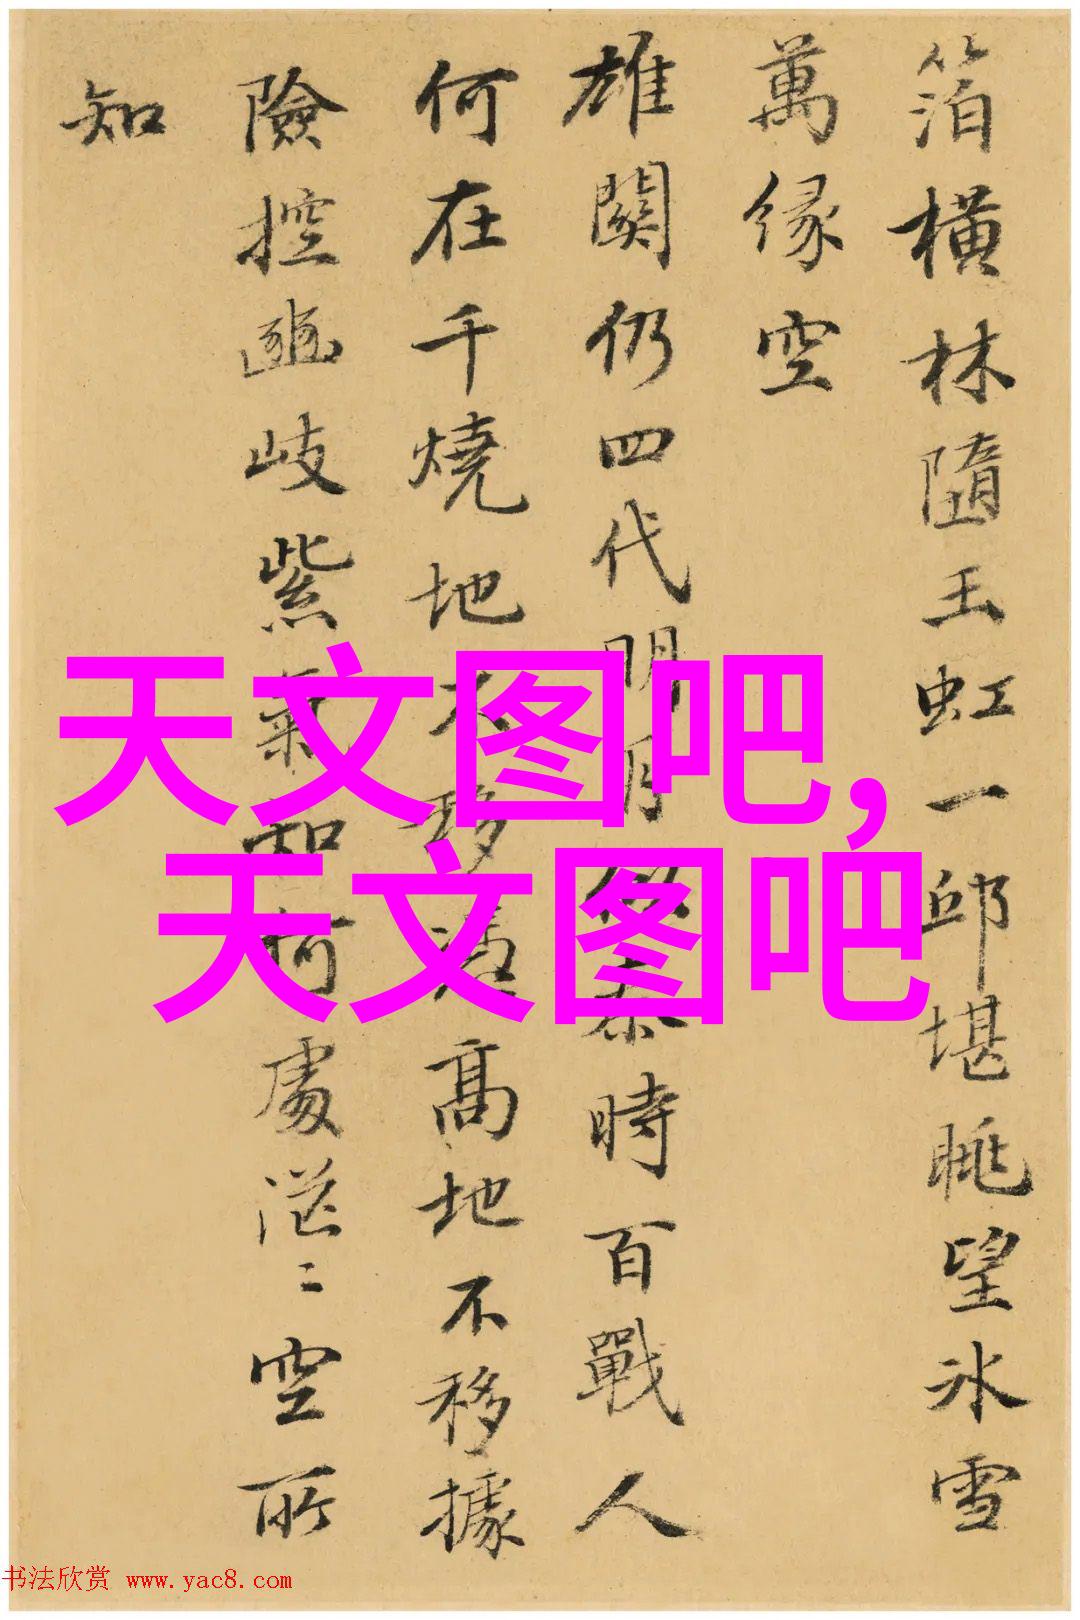 箔橫林隨玉虹一邱堪眺望冰雪
萬緣空
雄關仍四代明月秦時百戰人
何在千燒地不移憑高地不移據
險控豳岐紫氣知何處茫〻空所
知
天文图吧,
天文图吧
书法欣赏 www.yac8.com